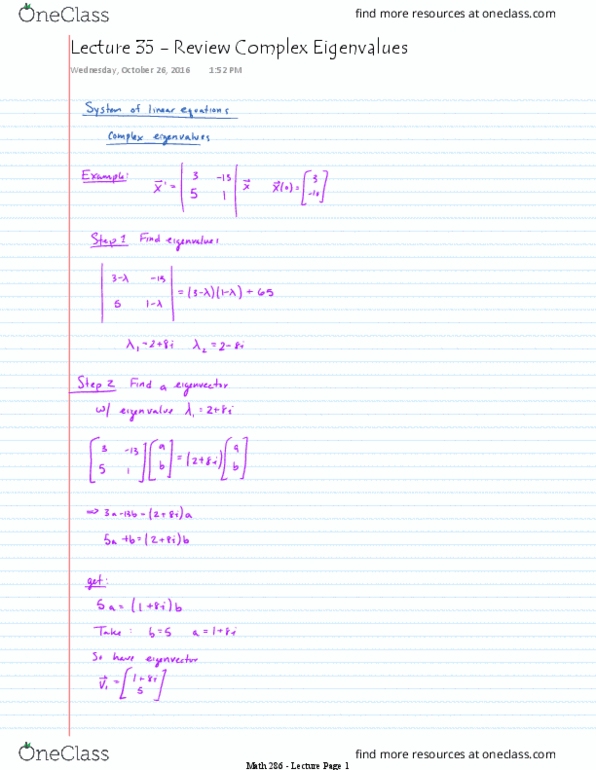 OneClass find more resources at oneclass.com
Lecture 35 – Review Complex Eigenvalues
Wednesday, October 26, 2016 1:52 PM
System of linear equations
Complex eigenvalues
Example: x⃗' = | 3 -13 | x⃗ x⃗(0) = [ 3 ]
| 5 1 | [ -10 ]
Step 1 Find eigenvalues
| 3-λ -13 |
| 5 1-λ | = (3-λ)(1-λ) + 65
λ₁ = 2+8i λ₂ = 2-8i
Step 2 Find a eigenvector
w/ eigenvalue λ₁ = 2+8i
[ 3 -13 ] [ a ] = (2+8i) [ a ]
[ 5 1 ] [ b ] [ b ]
⇒ 3a-13b = (2+8i)a
5a+b = (2+8i)b
get:
5a = (1+8i)b
Take: b=5 a=1+8i
So have eigenvector
v⃗₁ = [ 1+8i ]
[ 5 ]
OneClass find more resources at oneclass.com
Math 286 - Lecture Page 1